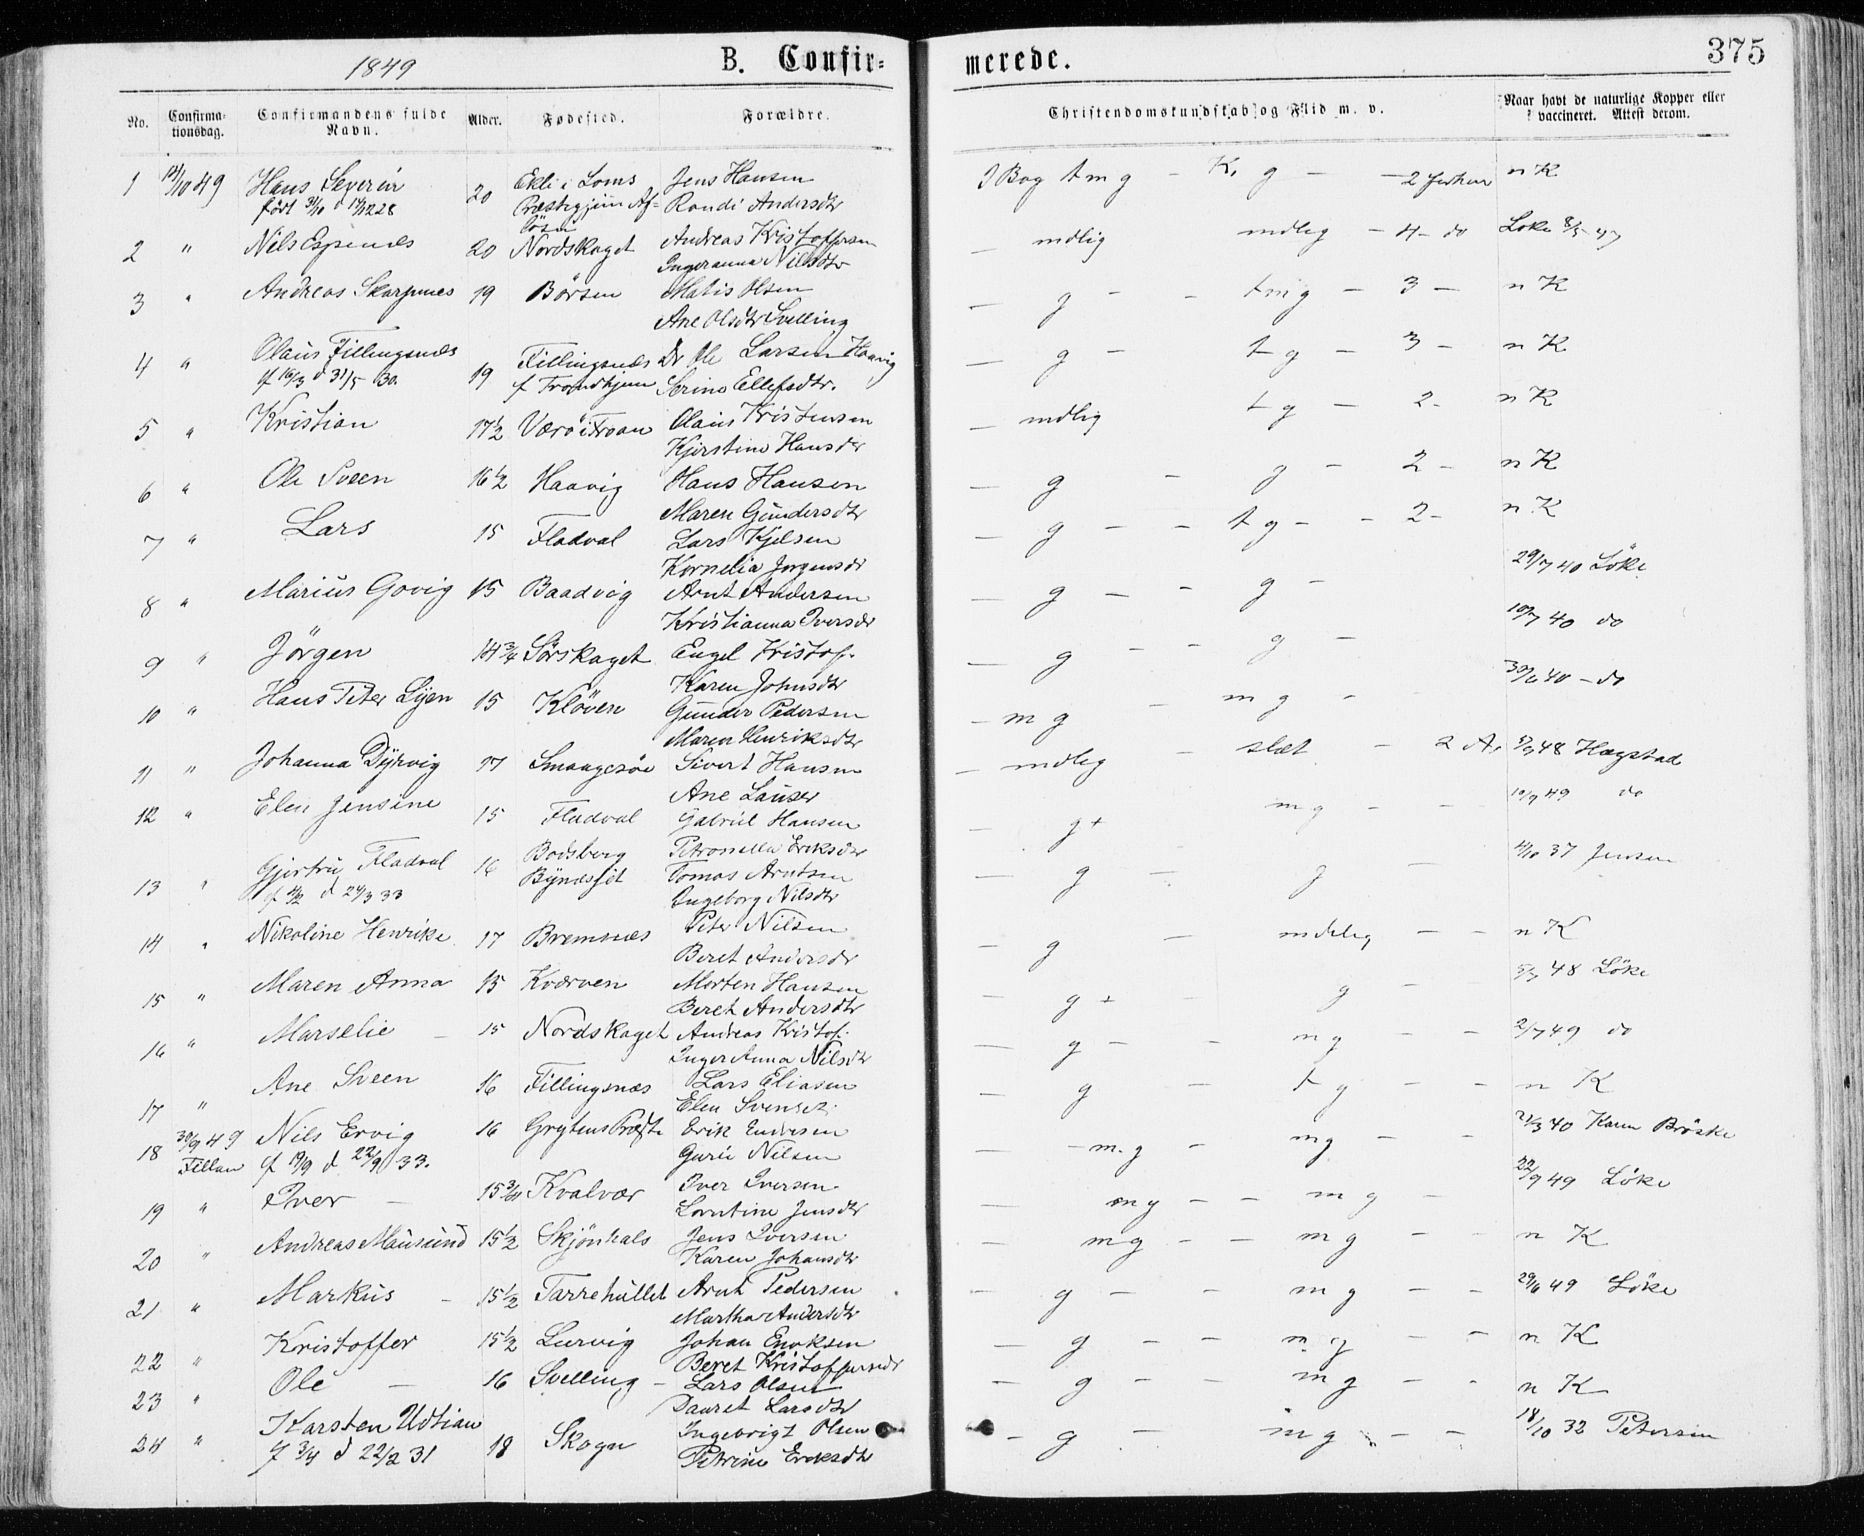 1849
B. Confir-
merede.
375
No.
Confirma-
tionsdag.
Confirmandens fulde
Navn.
Alder.
Fødested.
Forældre.
Christendomskundskab og Flid m. v.
Naar havt de naturlige Kopper eller
vaccineret. Attest derom.
1 14/10 49 Hans Severin 20 Ekli i Loms Jens Hansen
Præstegjem Af- Randi Andersdtr
I Bog t m g - K, g - - 2 n K
2 " Nils Espenæs 20 Nordskaget Andreas Kristoffersen
Ingeranna Nilsdtr
- mdlig mdlig - 4 - do Løke 8/5 47
3 " Andreas Skarpnes 19 Børsen Matis Olsen
Ane Olsdtr Svelling
- g - - tmg - 3 - n K
4 " Olaus Fillingsnæs 19 Fillingsnæs Ole Larsen Haavig
f 16/3 d 31/5 30. f Trondhjem Serine Ellefsdtr.
- g - t g - 3 - n K
5 " Kristian 17½ Værø i Froan Olaus Kristensen
Kjerstine Hansdr
- mdlig t g - 2 - n K
6 " Ole Sveen 16½ Haavig Hans Hansen
Maren Gundersdtr
- g - g - 2 - n K
7 " Lars 15 Fladval Lars Kjelsen
Kornelia Jørgensdr
- g - - t g - - 2 - n K
8 " Marius Govig 15 Baadvig Arnt Andersen
Kristianna Iversdr
- g - - g - 29/7 40 Løke
9 " Jørgen 14¾ Sørskaget Engel Kristof.
Karen Johnsdtr
- g - - g - 10/7 40 do
10 " Hans Peter Lyen 15 Kløven Gunder Pedersen
Maren Henriksdtr
- m g - m g - 30/6 40 - do
11 " Johanna Dyrvig 17 Smaagesøe Sivert Hansen
Ane
- mdlig - slet - 2 A. 5/7 48 Hægstad
12 " Elen Jensine 15 Fladval Gabriel Hansen
Petronella Eriksdtr
- g + m g - - 10/9 49 do
13 " Gjertru Fladval 16 Bodsberg Tomas Arntsen
d 24/3 33 Bynæsset Ingeborg Nilsdtr
- g - g - 37 Jensen
14 " Nikoline Henrike 17 Bremnæs Peter Nilsen
Beret Andersdr
- g - mdelig - - n K
15 " Maren Anna 15 Kværven Morten Hansen
Beret Andersdtr
- g + - g - 5/7 48 Løke
16 " Marselie - 15 Nordskaget Andreas Kristof.
Inger Anna Nilsdtr
- g - - mg - - 2/7 49 do
17 " Ane Sveen 16 Fillingsnæs Lars Eliasen
Elen
- g - t g - - n K
18 30/9 49 Nils Ervig 16 Grytens Erik
Fillan f 19/9 d 22/9 33. Guru Nilsen
- m. g - mg - - 21/3 40
19 " Iver - 15¾ Kvalvær Iver Iversen
Lorntine Jensdtr
- mg - - m g - 22/9 49 Løke
20 " Andreas Mausund 15½ Skjønhals Jens Iversen
Karen Johansdtr
- mg - - m g - - n K
21 " Markus - 15½ Tarrehullet Arnt Pedersen
Martha Andersdtr
- g - - m g - - 29/6 49 Løke
22 " Kristoffer 15½ Lurvig Johan Enoksen
Beret Kristoffersdr
- g - - m g - - n K
23 " Ole - 16 Svelling - Lars Olsen
Larsdtr
- g - - m g - - n K
24 " Karsten Udtian 18 Skogn Ingebrigt Olsen
f 3/4 d 22/2 31 Petrine Eriksdtr
- g - m g - - 18/10 32 Petersen